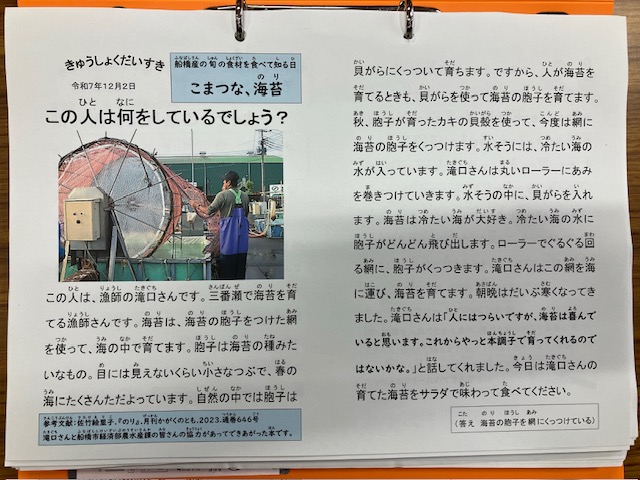 きゅうしょくだいすき
令和7年12月2日
船橋産の旬の食材を食べて知る日
こまつな、海苔
この人は何をしているでしょう？
この人は、漁師の滝口さんです。三番瀬で海苔を育
てる漁師さんです。海苔は、海苔の胞子をつけた網
を使って、海の中で育てます。胞子は海苔の種みた
いなもの。目には見えないくらい小さなつぶで、春の
海にたくさんただよっています。自然の中では胞子は
参考文献：佐竹絵里子、『のり』、月刊かがくのとも、2023、通巻646号
滝口さんと船橋市経済部農水産課の皆さんの協力があってできあがった本です。
貝がらにくっついて育ちます。ですから、人が海苔を
育てるときも、貝がらを使って海苔の胞子を育てます。
秋、胞子が育ったカキの貝殻を使って、今度は網に
海苔の胞子をくっつけます。水そうには、冷たい海の
水が入っています。滝口さんは丸いローラーにあみ
を巻きつけていきます。水そうの中に、貝がらを入れ
ます。海苔は冷たい海が大好き。冷たい海の水に
胞子がどんどん飛び出します。ローラーでぐるぐる回
る網に、胞子がくっつきます。滝口さんはこの網を海
に運び、海苔を育てます。朝晩はだいぶ寒くなってき
ました。滝口さんは「人にはつらいですが、海苔は喜んで
いると思います。これからやっと本調子で育ってくれるので
はないかな。」と話してくれました。今日は滝口さんの
育てた海苔をサラダで味わって食べてください。
（答え 海苔の胞子を網にくっつけている）